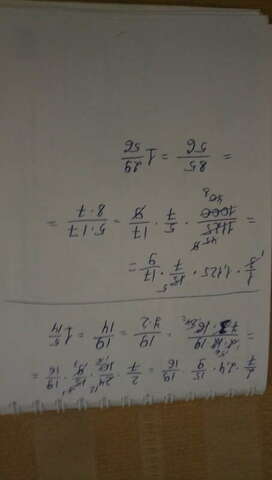 2/7 · 2,4 · 15/9 · 19/16 = 2/7 · 24/10 · 15/9 · 19/16 =
= 19/7·2 = 19/14 = 1 5/14
1/3 · 1,125 · 15/7 · 17/9 =
= 1125/1000 · 5/7 · 17/9 = 5·17/8·7 =
= 85/56 = 1 29/56